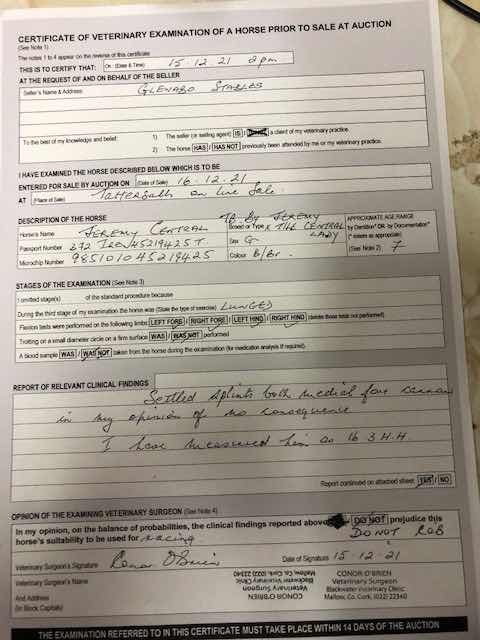 CERTIFICATE OF VETERINARY EXAMINATION OF A HORSE PRIOR TO SALE AT AUCTION
(See Note 1)
The notes 1 to 4 appear on the reverse of this certificate
THIS IS TO CERTIFY THAT: On (Date & Time) 15.12.21 2pm
AT THE REQUEST OF AND ON BEHALF OF THE SELLER
Seller's Name & Address GLENABO STABLES
To the best of my knowledge and belief: 1) The seller (or selling agent) IS / a client of my veterinary practice.
2) The horse HAS / HAS NOT previously been attended by me or my veterinary practice.
I HAVE EXAMINED THE HORSE DESCRIBED BELOW WHICH IS TO BE
ENTERED FOR SALE BY AUCTION ON (Date of Sale) 16.12.21
AT (Place of Sale) Tattersalls on line Sale.
DESCRIPTION OF THE HORSE
Horse's Name JEREMY CENTRAL
Passport Number 372 IRE/45219425T
Microchip Number 985101045219425
Breed or Type TB. By JEREMY X THE CENTRAL LADY
Sex G
Colour B/Br.
APPROXIMATE AGE RANGE
by Dentition* OR by Documentation*
(* delete as appropriate)
(See Note 2) 7
STAGES OF THE EXAMINATION (See Note 3)
I omitted stage(s) of the standard procedure because
During the third stage of my examination the horse was (State the type of exercise) LUNGED
Flexion tests were performed on the following limbs LEFT FORE / RIGHT FORE / LEFT HIND / RIGHT HIND (delete those tests not performed)
Trotting on a small diameter circle on a firm surface WAS / WAS NOT performed
A blood sample WAS / WAS NOT taken from the horse during the examination (for medication analysis if required).
REPORT OF RELEVANT CLINICAL FINDINGS
Settled splints both medial fore cannon
in my opinion of no consequence
I have measured him as 16 3 H.H.
Report continued on attached sheet YES / NO
OPINION OF THE EXAMINING VETERINARY SURGEON (See Note 4)
In my opinion, on the balance of probabilities, the clinical findings reported above DO NOT prejudice this
horse's suitability to be used for racing. DO NOT COB
Veterinary Surgeon's Signature Conor O'Brien Date of Signature 15.12.21
Veterinary Surgeon's Name
And Address
(in Block Capitals)
CONOR O'BRIEN
Veterinary Surgeon
Blackwater Veterinary Clinic
Mallow, Co. Cork. (022) 22340
CONOR O'BRIEN
Veterinary Surgeon
Blackwater Veterinary Clinic
Mallow, Co. Cork. (022) 22340
THE EXAMINATION REFERRED TO IN THIS CERTIFICATE MUST TAKE PLACE WITHIN 14 DAYS OF THE AUCTION